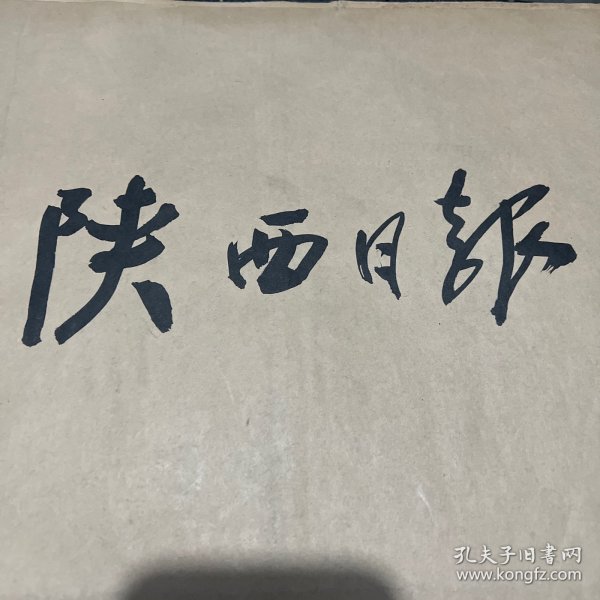 陕西日報
孔夫子旧書网
www.kongfz.com